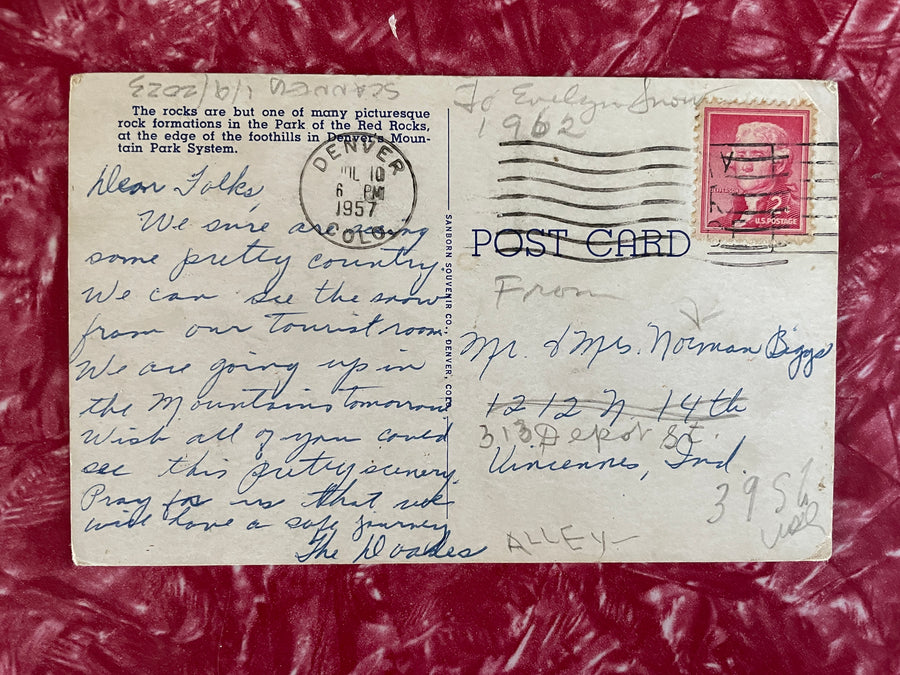 SCANNED 1/9/2023
The rocks are but one of many picturesque
rock formations in the Park of the Red Rocks,
at the edge of the foothills in Denver's Moun-
tain Park System.
DENVER
JUL 10
6 PM
1957
COLO.
Dear Folks,
We sure are seeing
some pretty country.
We can see the snow
from our Tourist room.
We are going up in
the Mountains tomorrow
Wish all of you could
see this pretty scenery.
Pray for us that we
will have a safe journey
The Doades
SANBORN SOUVENIR CO., DENVER, COLO.
To Evelyn Snow
1962
2¢
U.S. POSTAGE
POST CARD
From
Mr. & Mrs. Norman Biggs
1212 N. 14th
313 Depot St.
Vincennes, Ind.
ALLEY